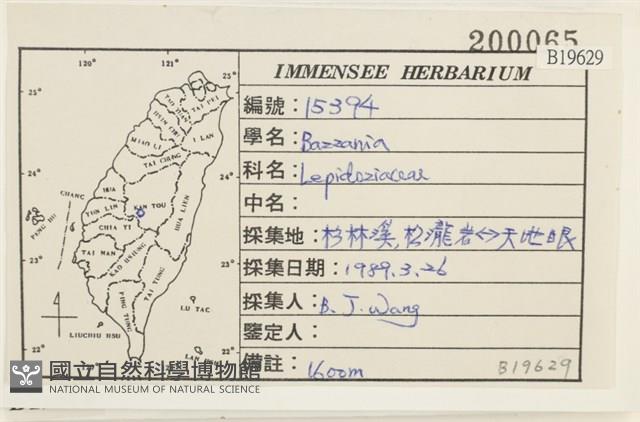 200065
B19629
IMMENSEE HERBARIUM
編號：15394
學名：Bazzania
科名：Lepidoziaceae
中名：
採集地：杉林溪，松瀧岩↔天地眼
採集日期：1989.3.26
採集人：B. J. Wang
鑒定人：
備註：1600m
B19629
120° 121°
25° 25°
TAO YUAN
TAI PEI
HSIN CHU
I LAN
MIAO LI
TAI CHUNG
24° 24°
CHANG HUA
NAN TOU
YUN LIN
HUA LIEN
PENG HU
CHIA YI
23° 23°
TAI NAN
KAO HSIUNG
TAI TUNG
PING TUNG
LU TAO
LIUCHIU HSU
22° 22°
LAN HSU
國立自然科學博物館
NATIONAL MUSEUM OF NATURAL SCIENCE